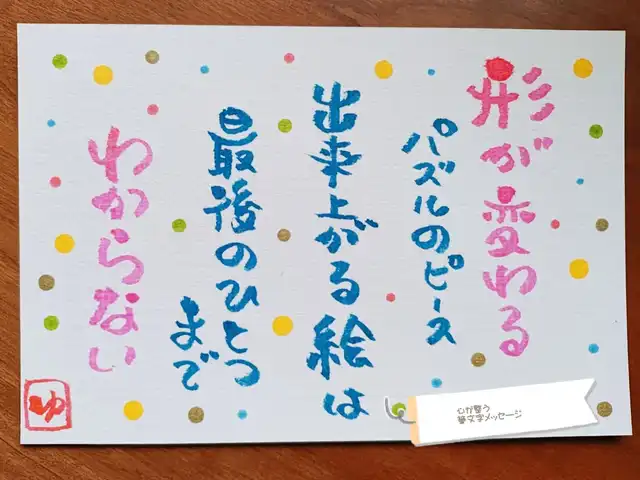 形が変わる
パズルのピース
出来上がる絵は
最後のひとつ
まで
わからない
ゆ
心が整う
筆文字メッセージ